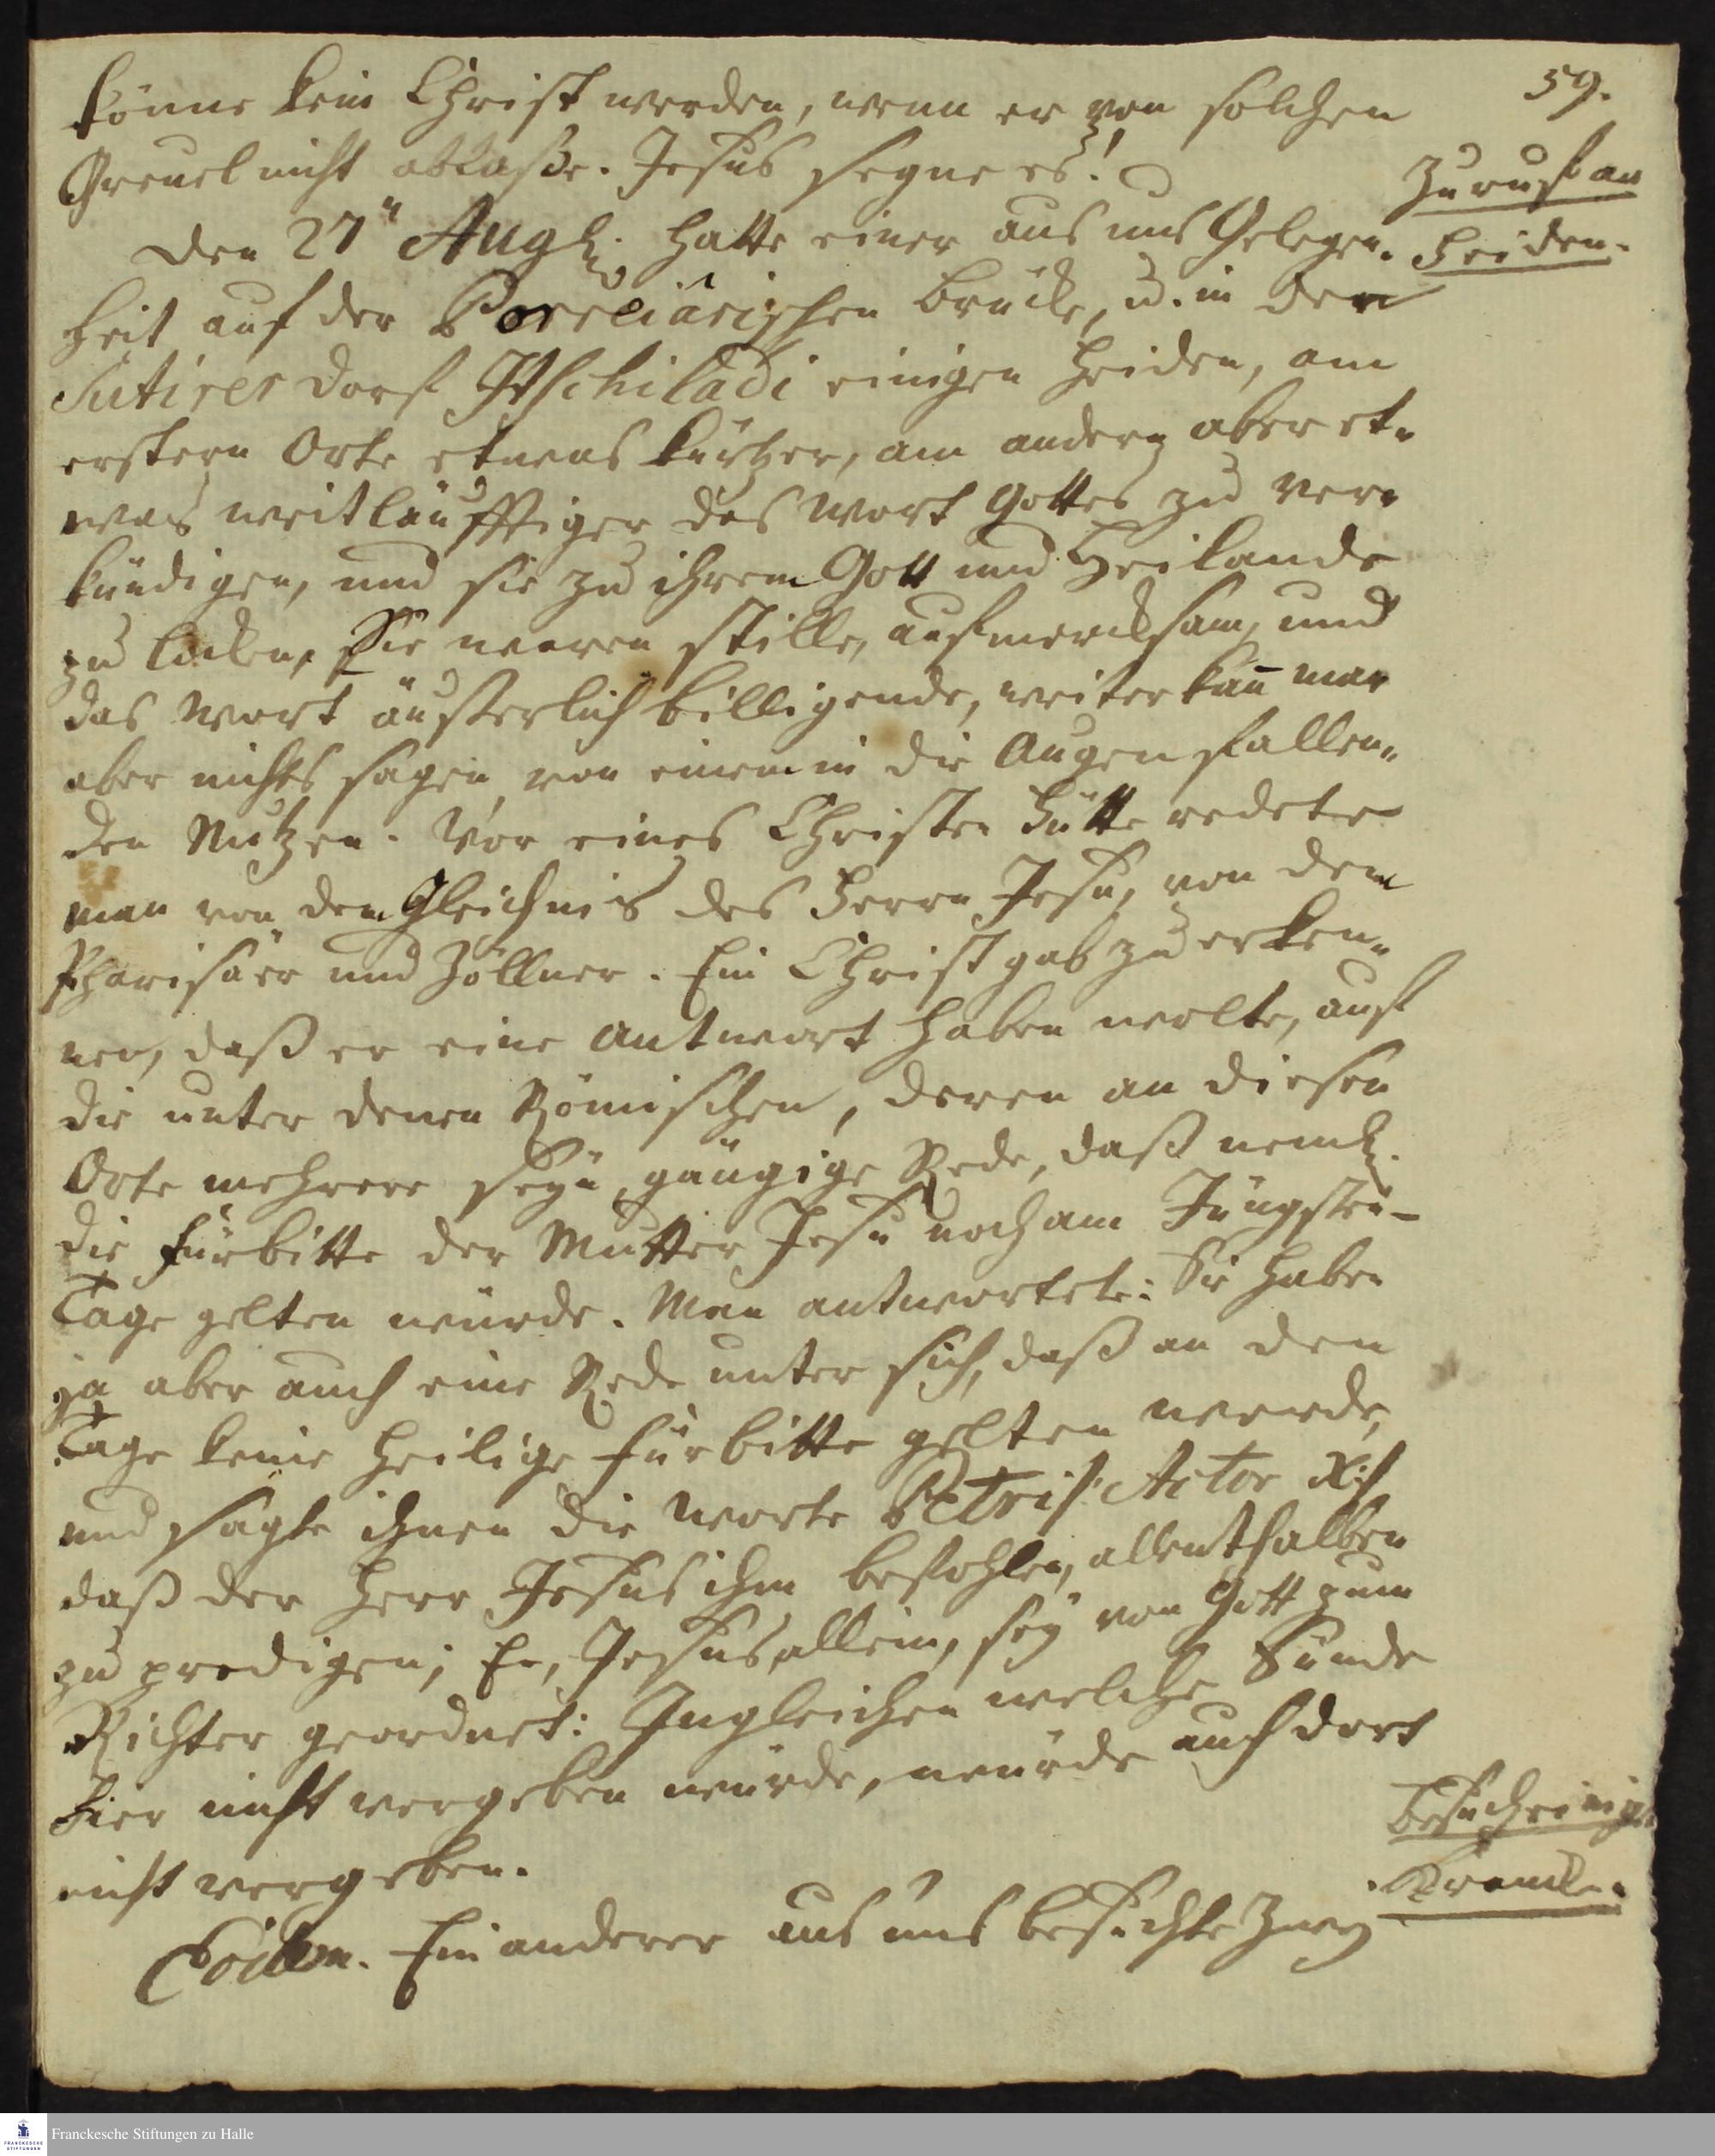 59.
könne kein Christ werden, wenn er von solchen
Greuel nicht ablaße. Jesus segne es!
Zuruf an
Heiden.
Den 27n Augl. hatte einer aus uns Gelegen-
heit auf der Poreiarischen Brücke, u. in der
Sutirer Dorf Itschiladi einigen Heiden, am
erstern Orte etwas kürtzer, am andern aber et-
was weitläufftiger das Wort Gottes zu ver-
kündigen, und sie zu ihrem Gott und Heilande
zu locken, Sie waren stille, aufmercksam, und
das Wort äußerlich billigende, weiter kan̄ man
aber nichts sagen von einem in die Augen fallen-
den Nutzen. Vor eines Christen Hütte redete
man von dem Gleichnis des Herrn Jesu, von dem
Pharisäer und Zöllner. Ein Christ gab zu erken-
nen, daß er eine Antwort haben wolte, auf
die unter denen Römischen, deren an diesen
Orte mehrere seyn, gängige Rede, daß neml.
die Fürbitte der Mutter Jesu noch am Jüngsten
Tage gelten würde. Man antwortete: Sie haben
ja aber auch eine Rede unter sich, daß an den
Tage keine heilige Fürbitte gelten werde,
und sagte ihnen die Worte Petri Actor X.
daß der Herr Jesus ihm befohlen, allenthalben
zu predigen; Er, Jesus allein, sey von Gott zum
Richter geordnet: Ingleichen welche Sünde
hier nicht vergeben würde, würde auch dort
nicht vergeben.
Besuch einiger
Krancken.
Eodem. Ein anderer aus uns besuchte zwey
Franckesche Stiftungen zu Halle